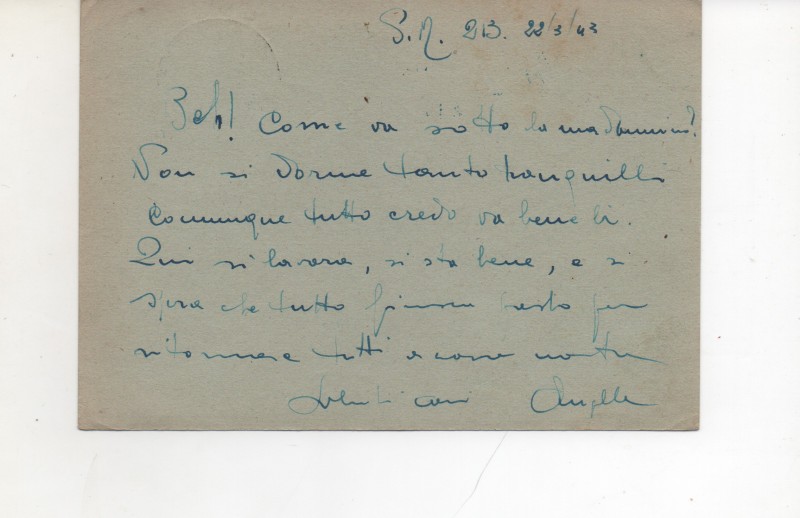 S.M. 2B. 22/3/43
Beh! Come va sotto la madonnina?
Non si dorme tanto tranquilli
Comunque tutto credo va bene lì.
Qui si lavora, si sta bene, e si
spera che tutto finisca presto per
ritornare tutti a casa nostra
Saluti cari Angelo